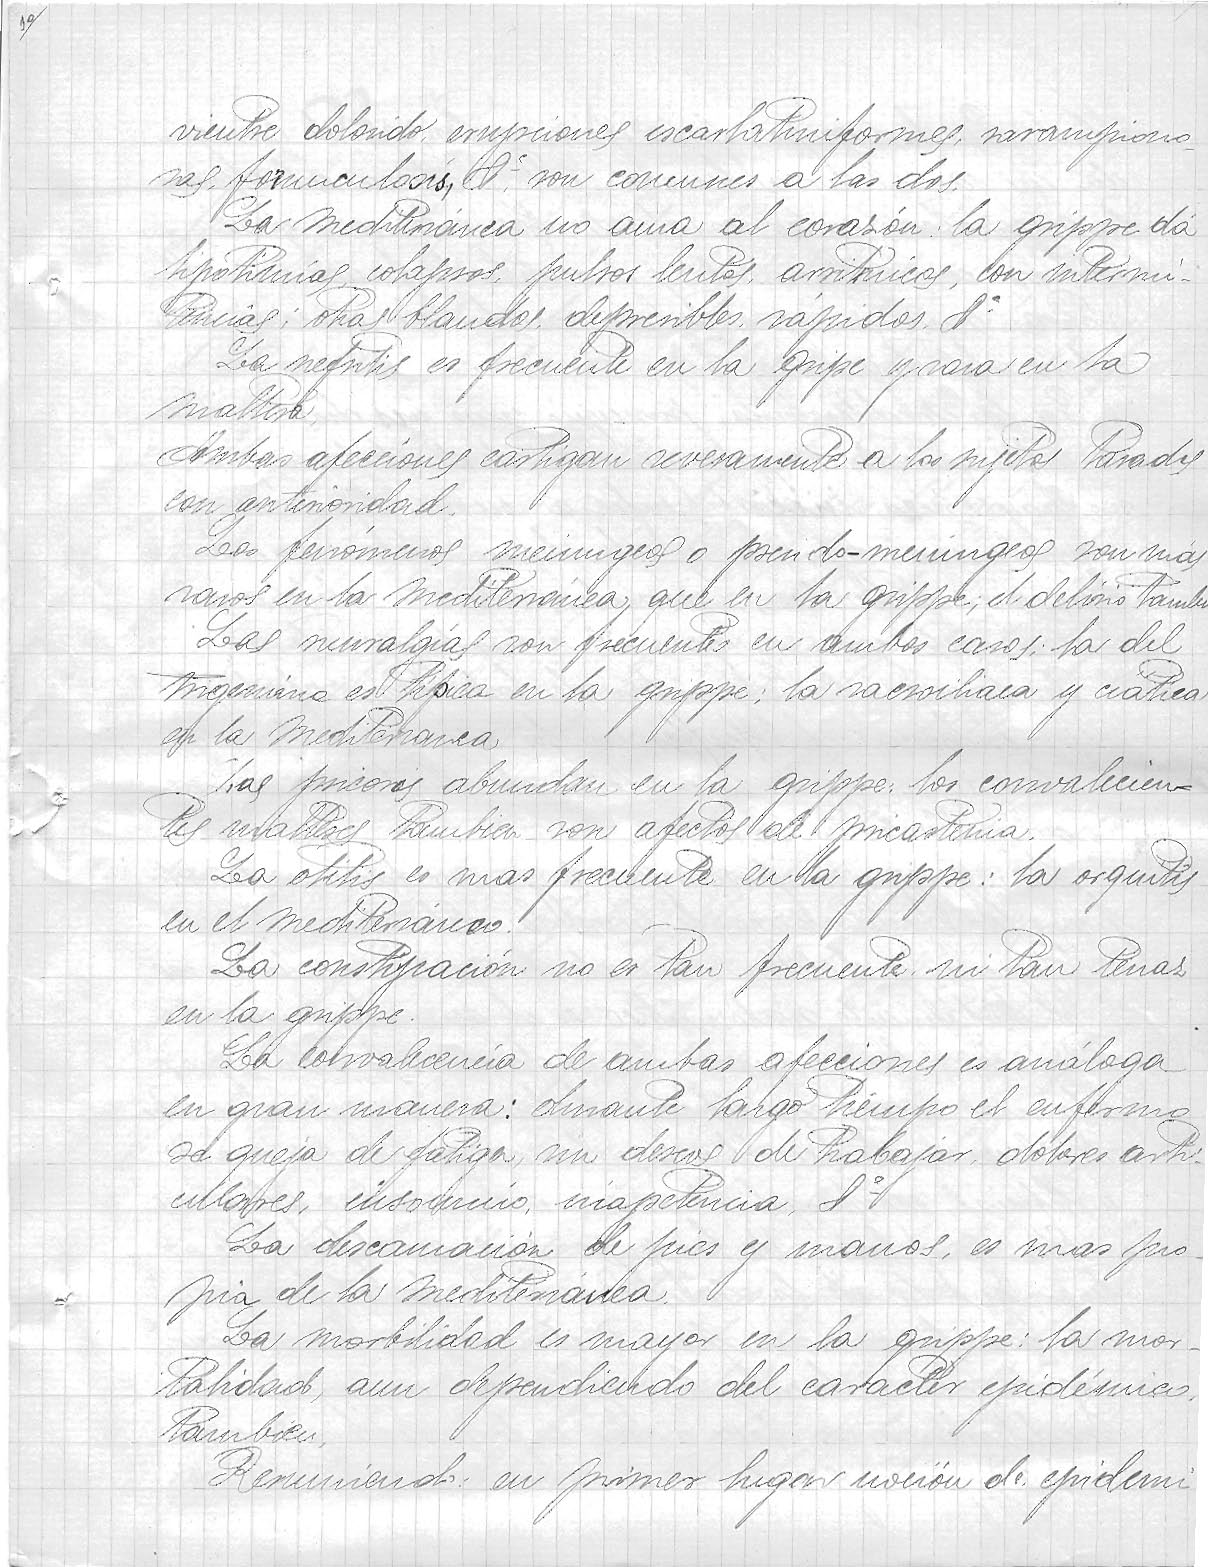 vientre dolorido, erupciones escarlatiniformes, sarampiono-
sas, forunculosis, &ª, son comunes a las dos.
La mediterránea no ama al corazón: la grippe dá
lipotimias, colapsos, pulsos lentos, arrítmicos, con intermi-
tencias; otras blandos, depresibles, rápidos, &ª
La nefritis es frecuente en la gripe y rara en la
maltesa.
Ambas afecciones castigan severamente a los sujetos tarados
con anterioridad.
Los fenómenos meningeos o pseudo-meningeos son más
raros en la mediterránea, que en la grippe; el delirio tambi
Las neuralgías son frecuentes en ambos casos: la del
trigemino es típica en la grippe; la sacroiliaca y ciatica
en la mediterranea.
Las psicosis abundan en la grippe: los convalecien-
tes malteses tambien son afectos de psicastenia.
La otitis es mas frecuente en la grippe: la orquitis
en el mediterráneo.
La constipación no es tan frecuente ni tan tenaz
en la grippe.
La convalecencia de ambas afecciones es análoga
en gran manera: durante largo tiempo el enfermo
se queja de fatiga, sin deseos de trabajar, dolores arti-
culares, insomnio, inapetencia, &ª
La descamación de pies y manos, es mas pro-
pia de la mediterránea.
La morbilidad es mayor en la grippe: la mor-
talidad, aun dependiendo del caracter epidémico,
tambien.
Resumiendo: en primer lugar noción de epidemi